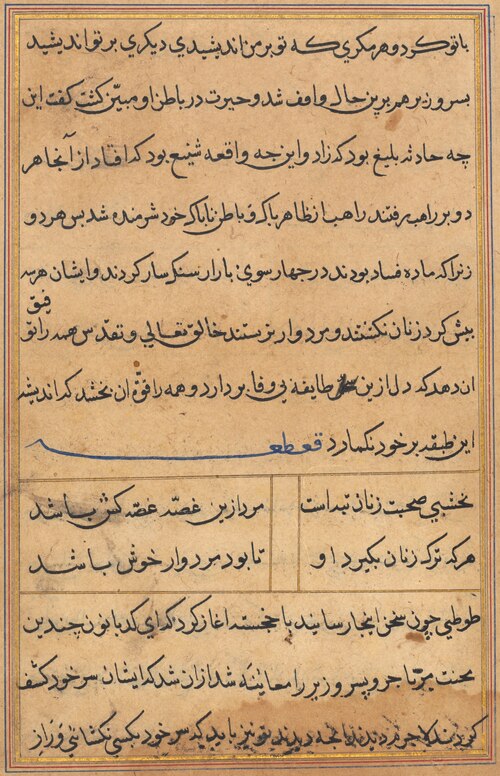 با تو کرد و هر مکری که تو بر من اندیشیدی دیکری بر تو اندیشید
بسر وزیر هم برین حال واقف شد و حیرت در باطن او مبیّن کشت کفت این
چه حادثه بلیغ بود که زاد و این چه واقعه شنیع بود که افتاد از آنجا هر
دو بر راهب رفتند راهب از ظاهر باک و باطن ناباک خود شرمنده شد بس هر دو
زنرا که ماده فساد بودند در چهار سوی بازار سنکسار کردند و ایشان هر سه
بیش کرد زنان نکشتند و مردوار بزیستند خالق تعالی و تقدّس همه را توفیق
ان دهد که دل ازین طایفه بی وفا بردارد و همه را قوّة ان بخشد که اندیشه
این طبقه بر خود نکمارد قطعه
نخشبی صحبت زنان تبه است مرد ازین غصّه غصّه کش باشد
هر که ترک زنان بکیرد او تا بود مردوار خوش باشد
طوطی چون سخن اینجا رسانید با خجسته اغاز کرد که ای کدبانو چندین
محنت مر تاجر و پسر وزیر را معاینه شد از ان شد که ایشان سر خود کشف
کردند لاجرم دیدند انچه دیدند تو نیز باید که سر خود بکسی نکشائی و راز